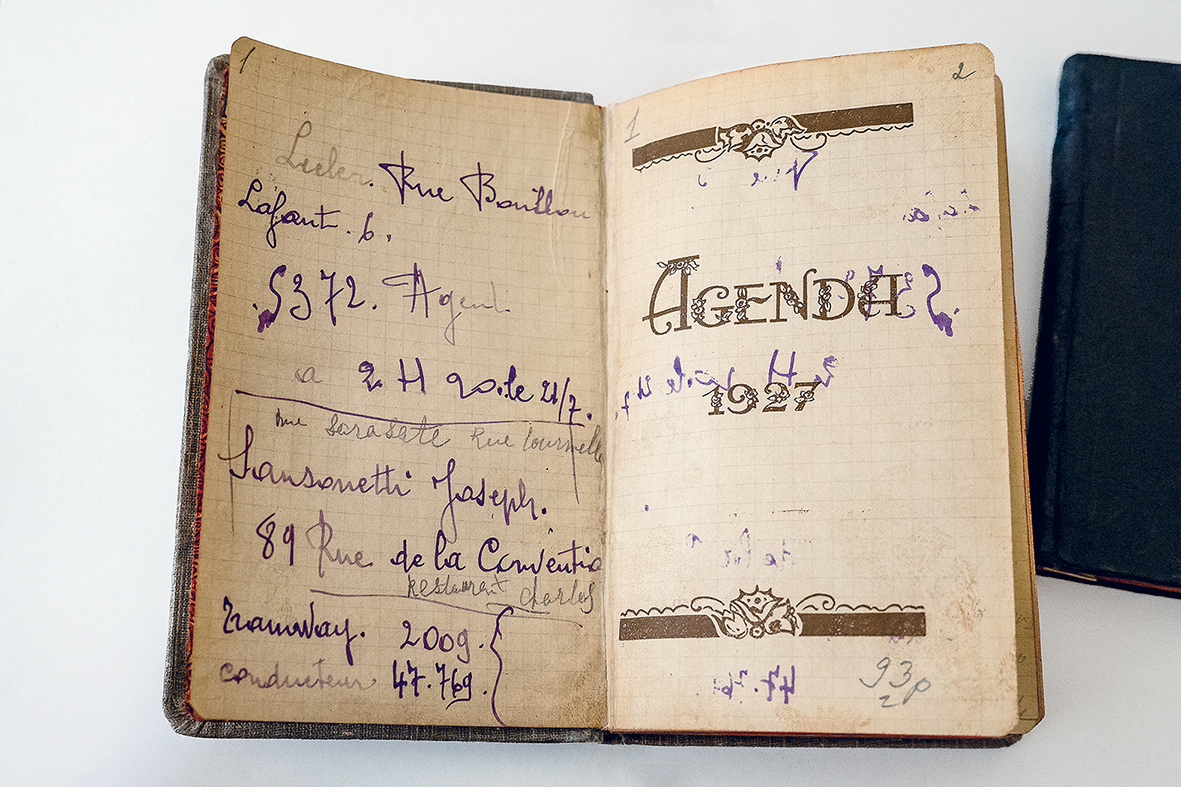 1
Rue Bouillon
Lafont. 6.
5372. Agent
a 2 H 20. le 21/7.
rue sarasate Rue tournelle
Sansonetti Joseph.
89 Rue de la Conventio
restaurent charles
Tramway. 2009.
conducteur 47.769.
2
1
AGENDA
1927
93p
2